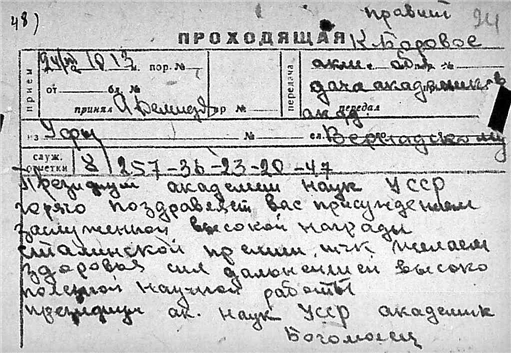 48)
правит
24
ПРОХОДЯЩАЯ К Боровое
прием
передача
пор. №
акмс. обл.
от бл. №
дача академиков
принял Демидова пор №
передал
акад.
из Уфы № сл. Вернадскому
служ. отметки 8 257-36-23-20-47
Президиум академии наук УССР
горячо поздравляет вас присуждением
заслуженной высокой награды
сталинской премии тчк желаем
здоровья сил дальнейшей высоко
полезной научной работы
президиум ак. наук УССР академик
Богомолец